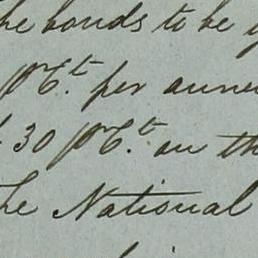 the bonds to be
pr Ct. per annu
30 pr Ct. on th
the National